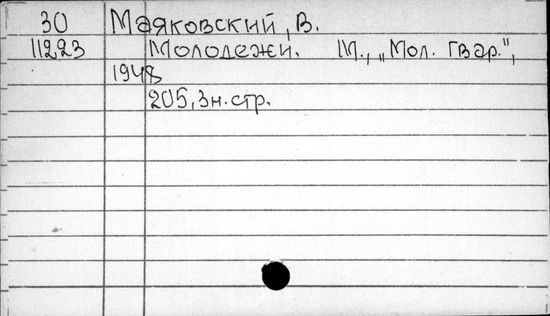 30 Маяковский, В.
11223 Молодежи. М., „Мол. Гвар.",
1948
205, 3н. стр.